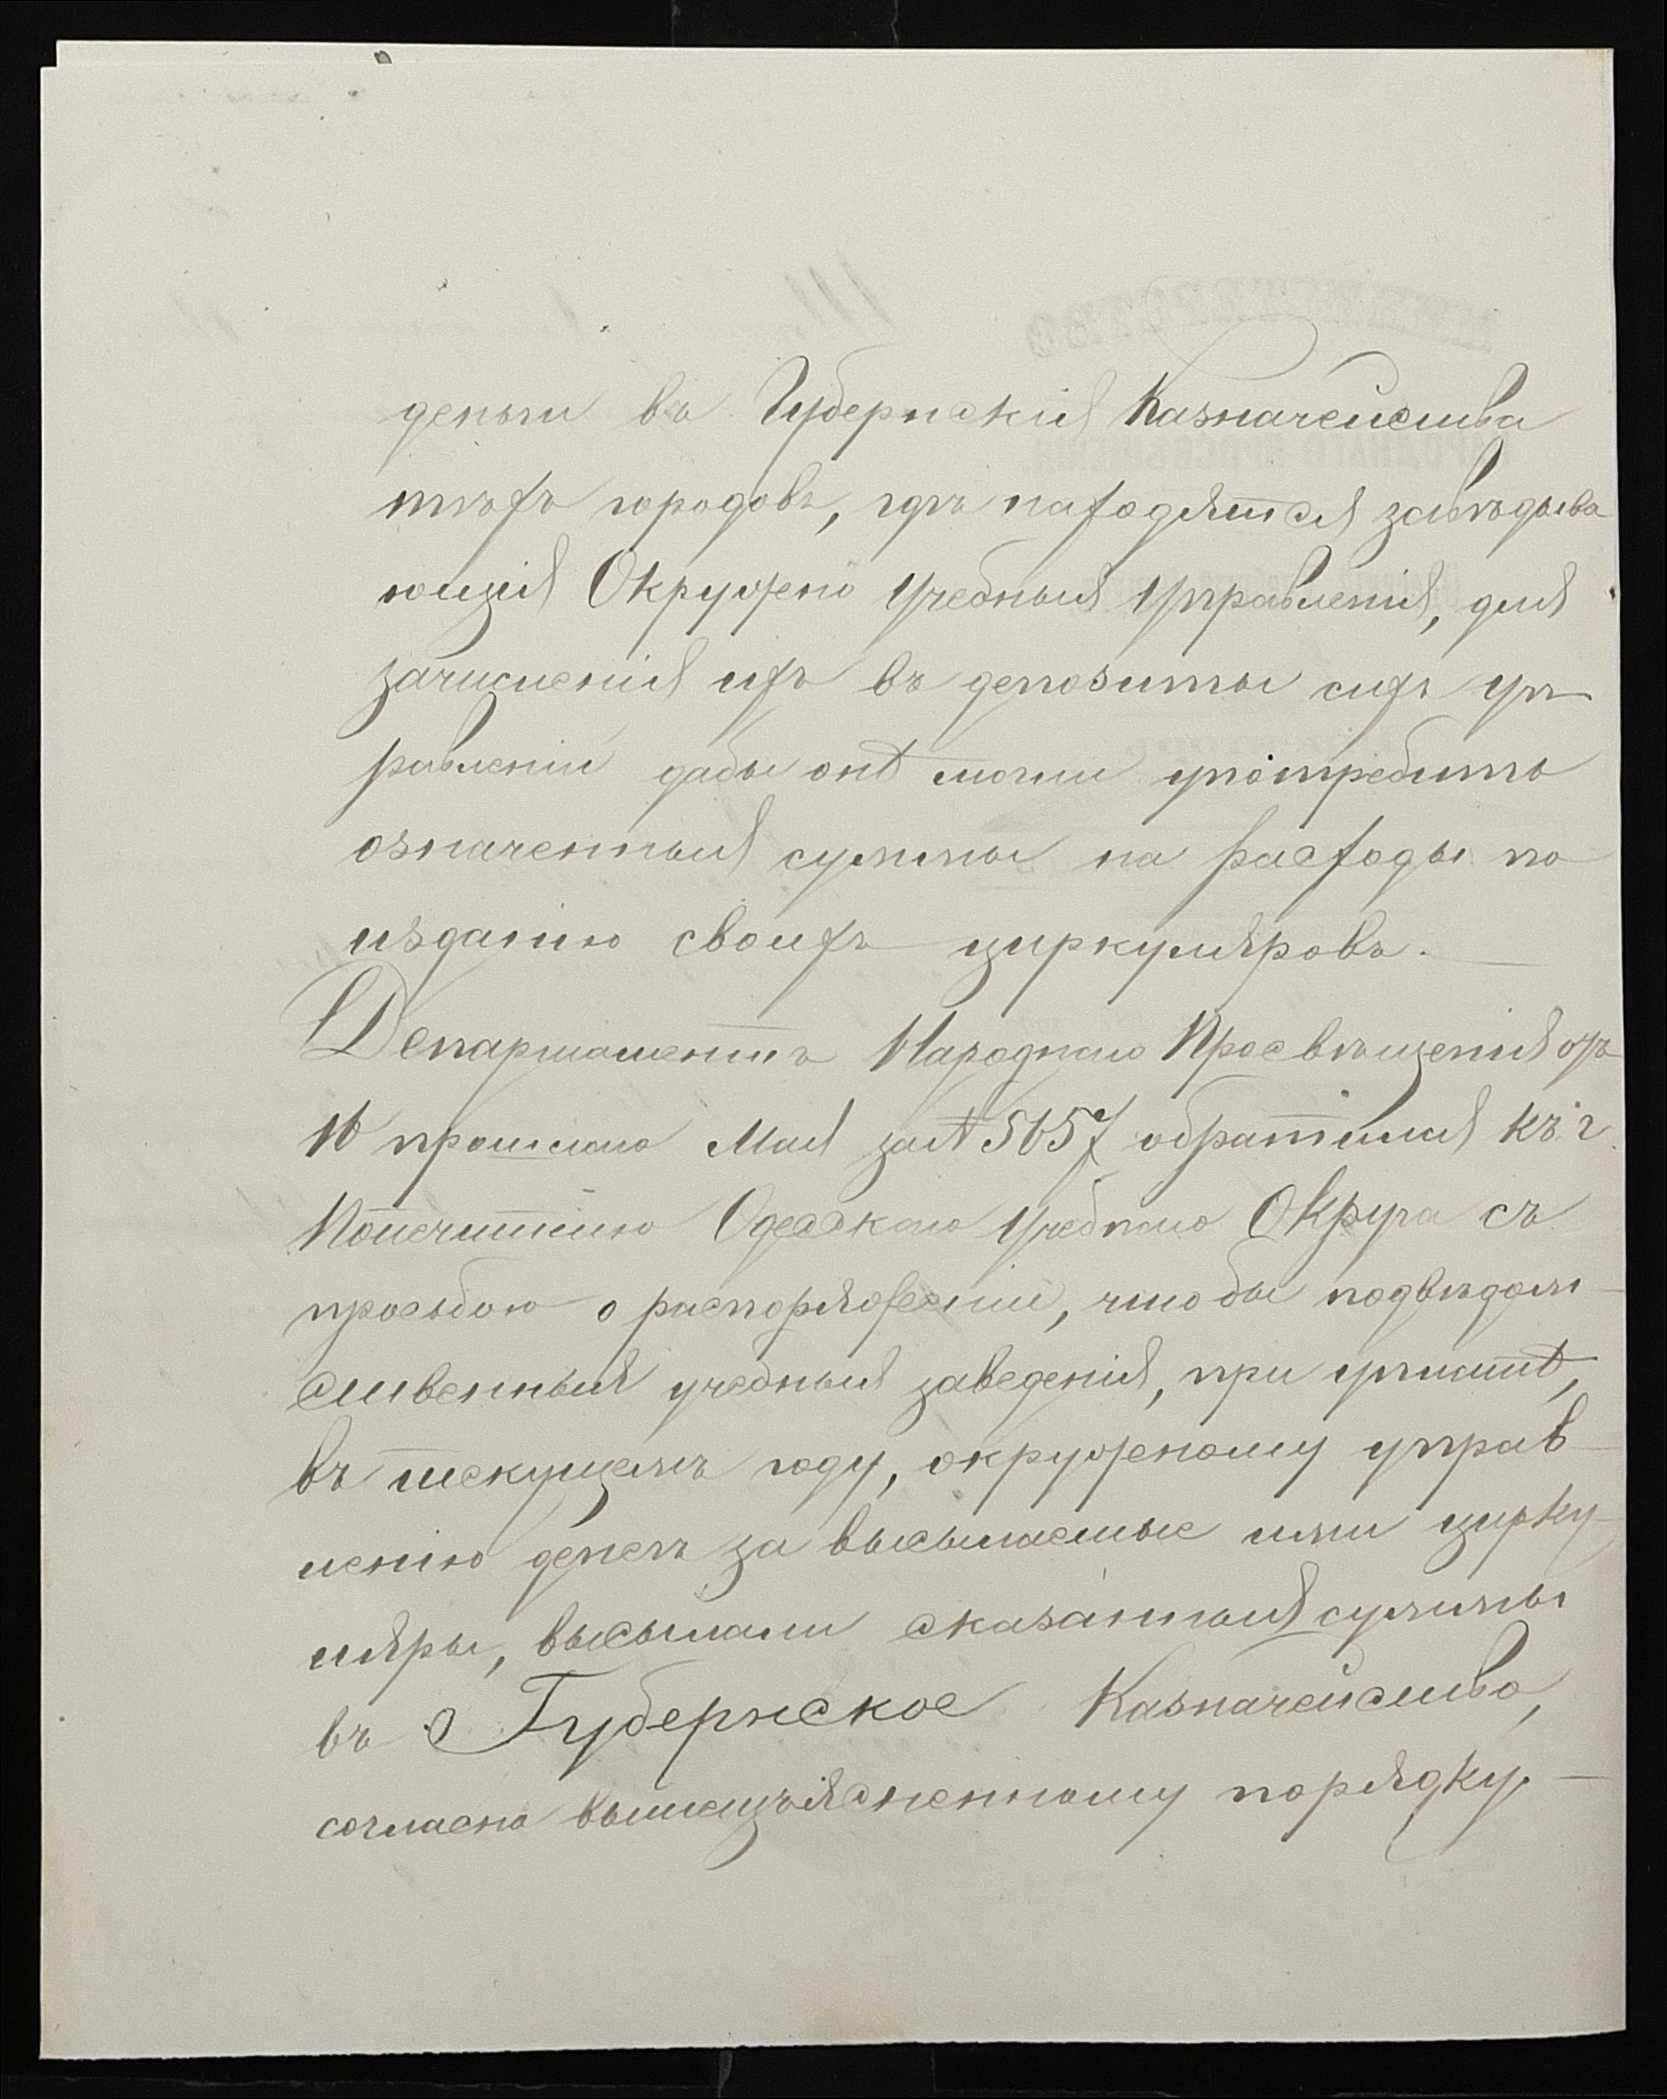 деньги въ Губернскія Казначейства
тѣхъ городовъ, гдѣ находятся завѣдыва
ющія Округомъ Учебныя Управленія, для
зачисленія ихъ въ депозиты сихъ уп-
равленій дабы онѣ могли употребить
означенныя суммы на расходы по
изданію своихъ циркуляровъ.
Департаментъ Народнаго Просвѣщенія отъ
16 прошлаго Мая за № 5657 обратился къ г.
Попечителю Одесскаго Учебнаго Округа съ
просьбою о распоряженіи, чтобы подвѣдом-
ственныя учебныя заведенія, при уплатѣ,
въ текущемъ году, окружному управ-
ленію денегъ за высылаемые ими цирку-
ляры, высылали сказанныя суммы
въ Губернское Казначейство,
согласно вышеизъясненному порядку. —